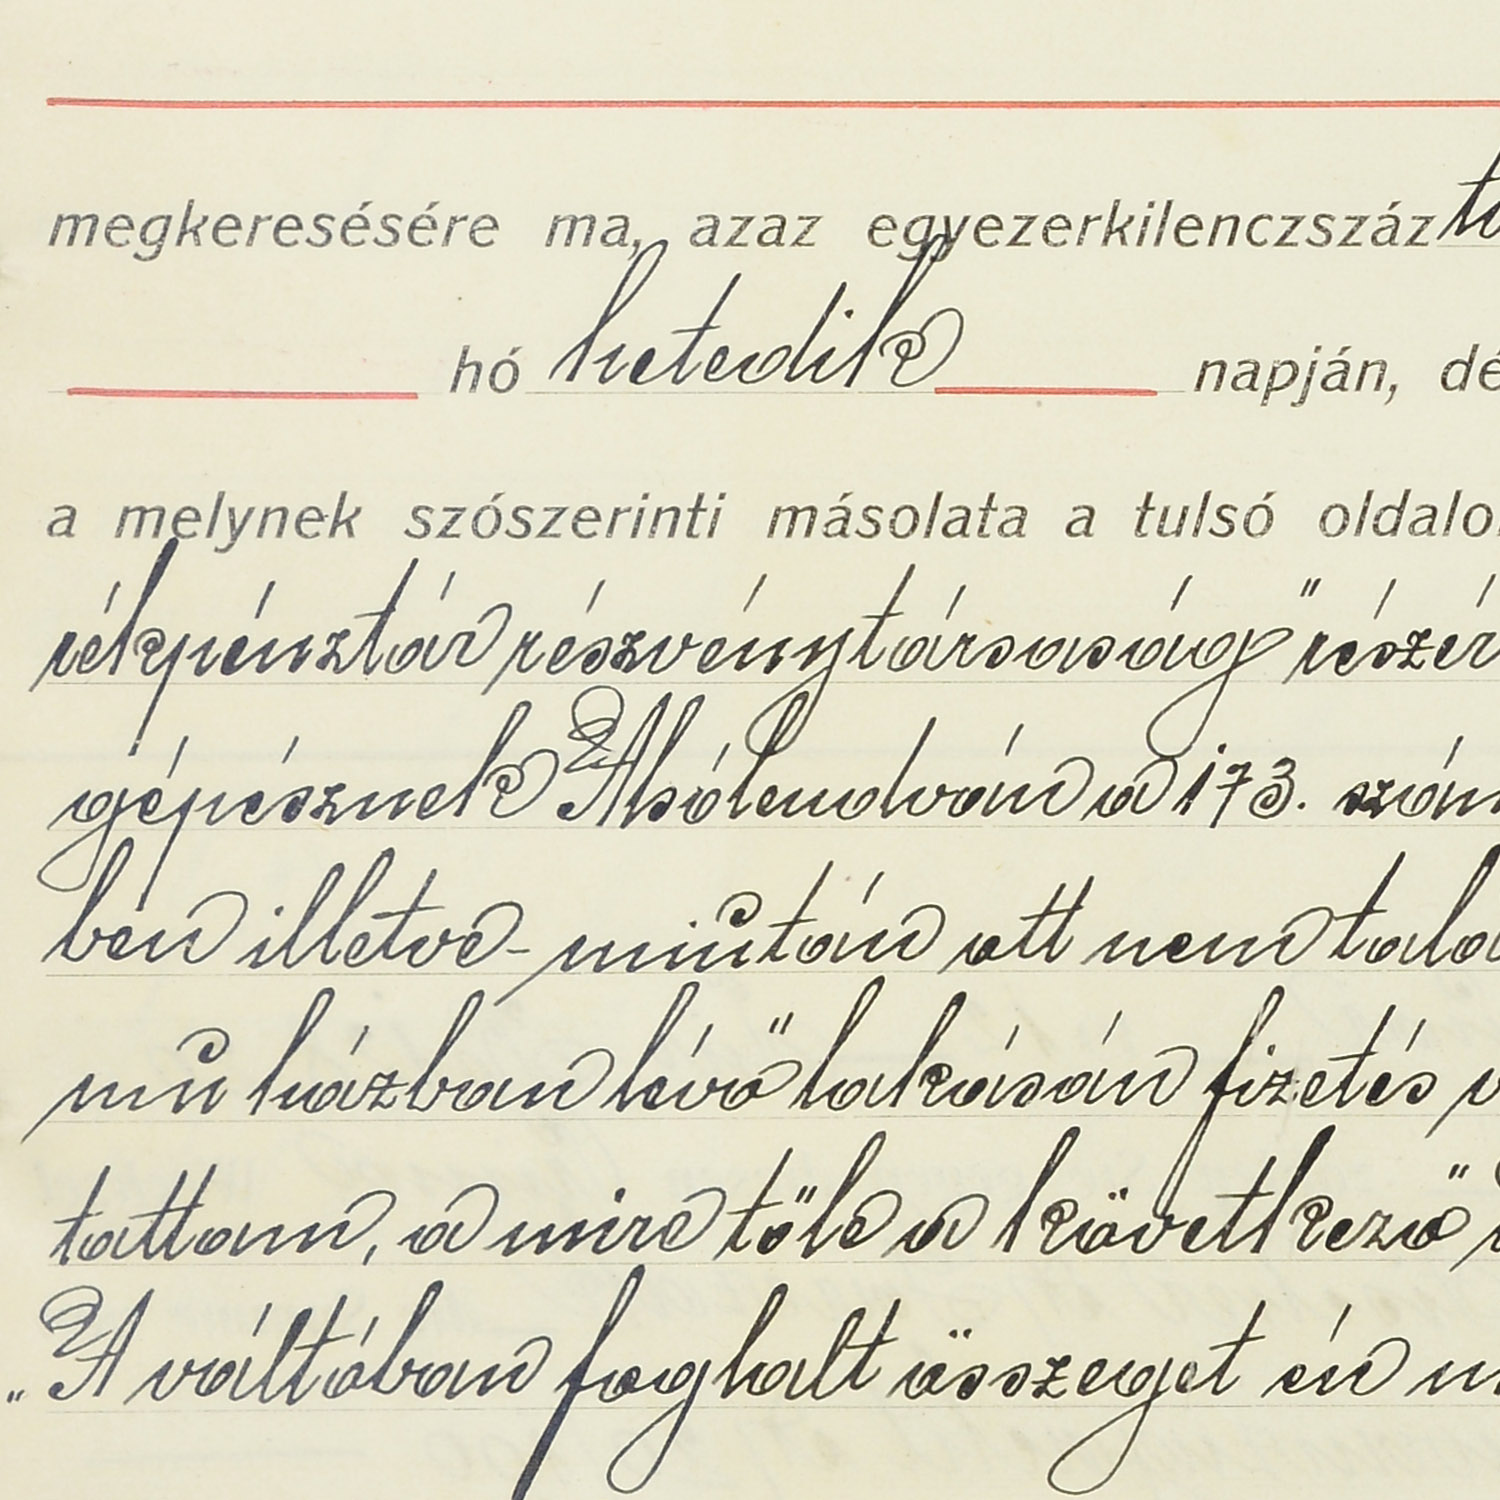 megkeresésére ma, azaz egyezerkilenczszáz
hó hetedik napján, dé
a melynek szószerinti másolata a tulsó oldalo
rékpénztár részvénytársaság" részér
gépésznek Alsólendván a 173. szám
ben illetve - miután ott nem talá
mű házban lévő lakásán fizetés v
tattam, a mire tőle a következő
„A váltóban foghalt összeget én